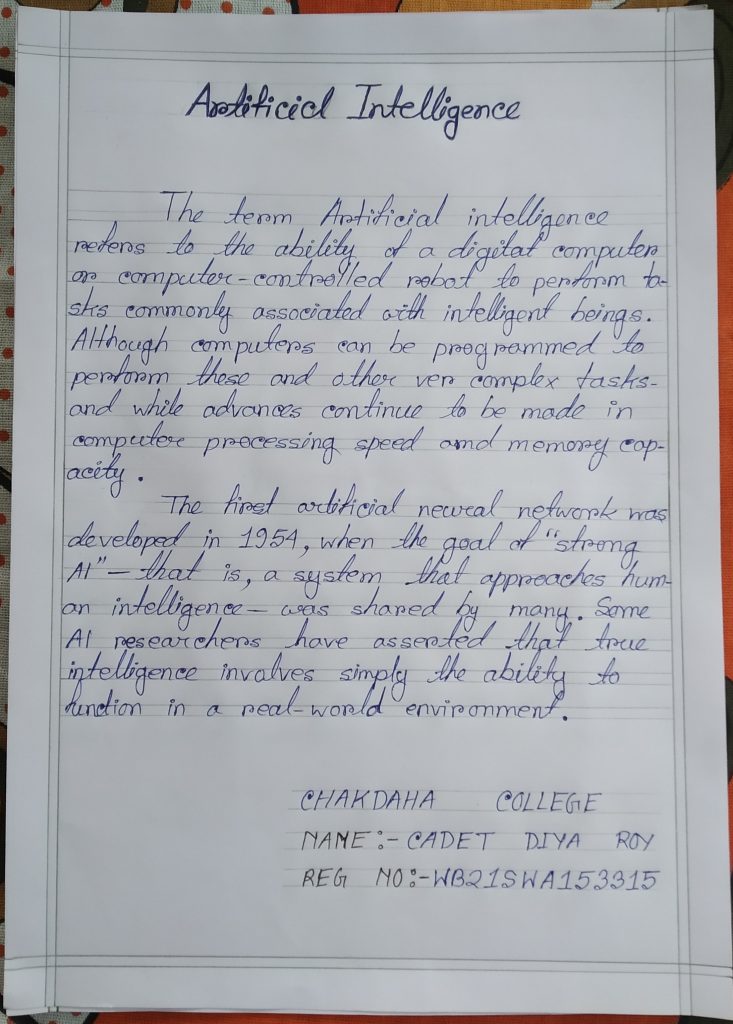 Artificial Intelligence
The term Artificial intelligence
refers to the ability of a digital computer
or computer-controlled robot to perform ta-
sks commonly associated with intelligent beings.
Although computers can be programmed to
perform these and other ver complex tasks-
and while advances continue to be made in
computer processing speed and memory cap-
acity.
The first artificial neural network was
developed in 1954, when the goal of "strong
AI" – that is, a system that approaches hum-
an intelligence – was shared by many. Some
AI researchers have asserted that true
intelligence involves simply the ability to
function in a real-world environment.
CHAKDAHA COLLEGE
NAME:- CADET DIYA ROY
REG NO:-WB21SWA153315